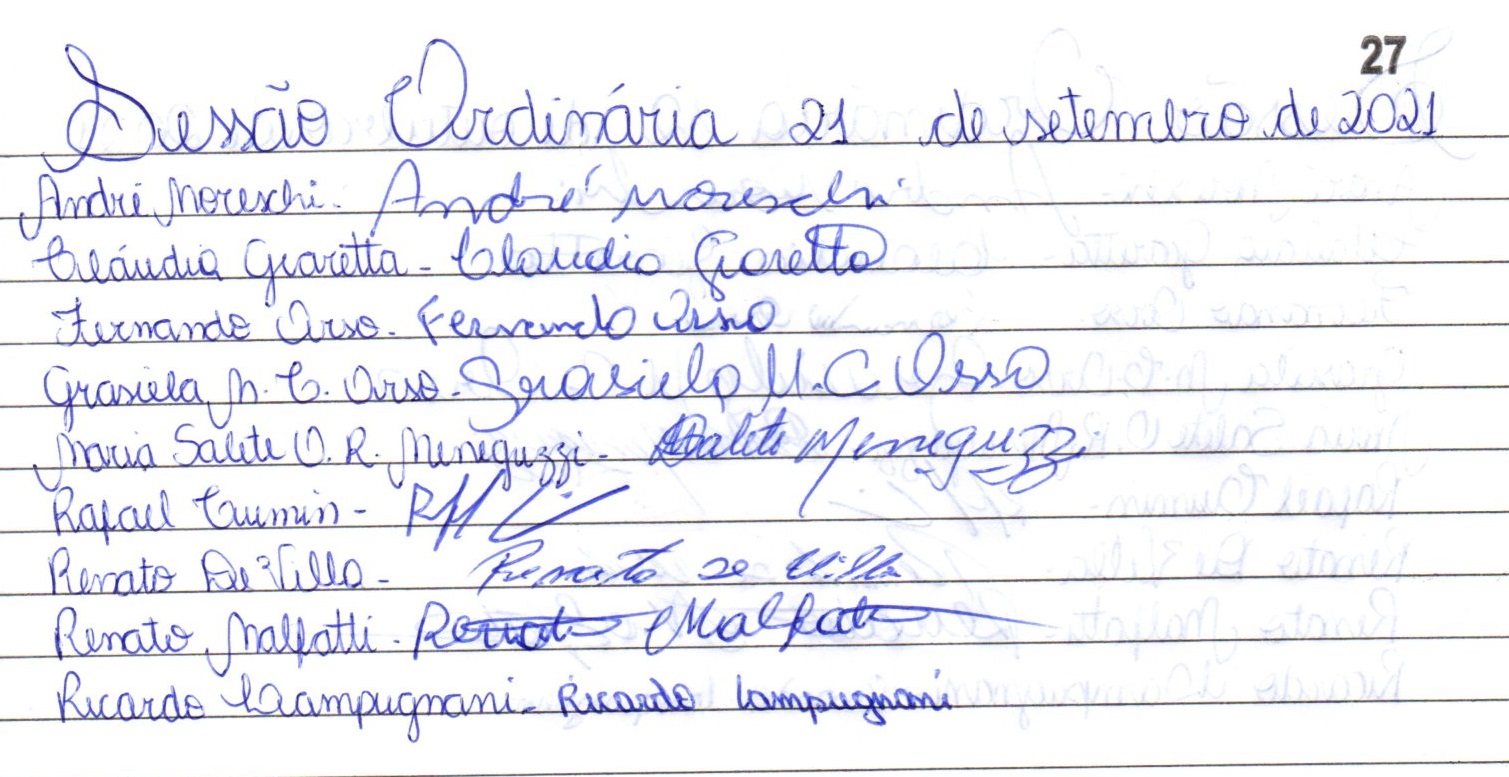 27
Sessão Ordinária 21 de setembro de 2021
André Moreschi. André Moreschi
Cláudia Giaretta - Claudia Giaretta
Fernando Orso. Fernando Orso
Grasiela M. C. Orso. Grasiela M.C Orso
Maria Salete O. R. Meneguzzi - Salete Meneguzzi
Rafael Cuimin -
Renato De Villa - Renato De Villa
Renato Malfatti. Renato Malfatti
Ricardo Campugnani - Ricardo Lampugnani